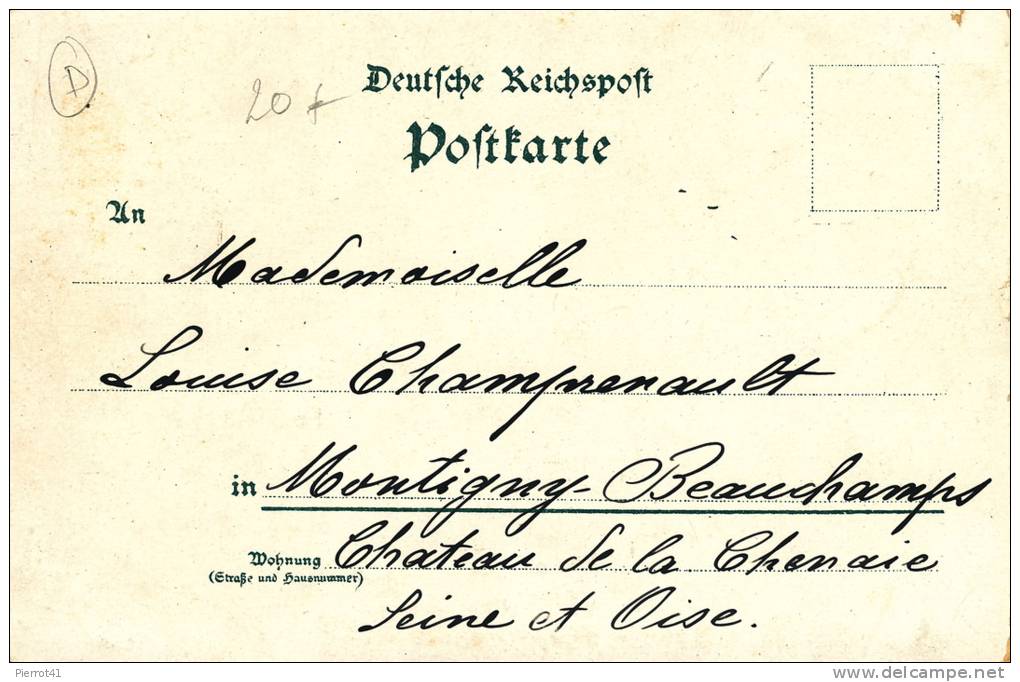 D
20 f
Deutsche Reichspost
Postkarte
An
Mademoiselle
Louise Champrenault
in Montigny-Beauchamps
Wohnung Chateau de la Chenaie
(Straße und Hausnummer)
Seine et Oise.
Pierrot41
delcampe.net